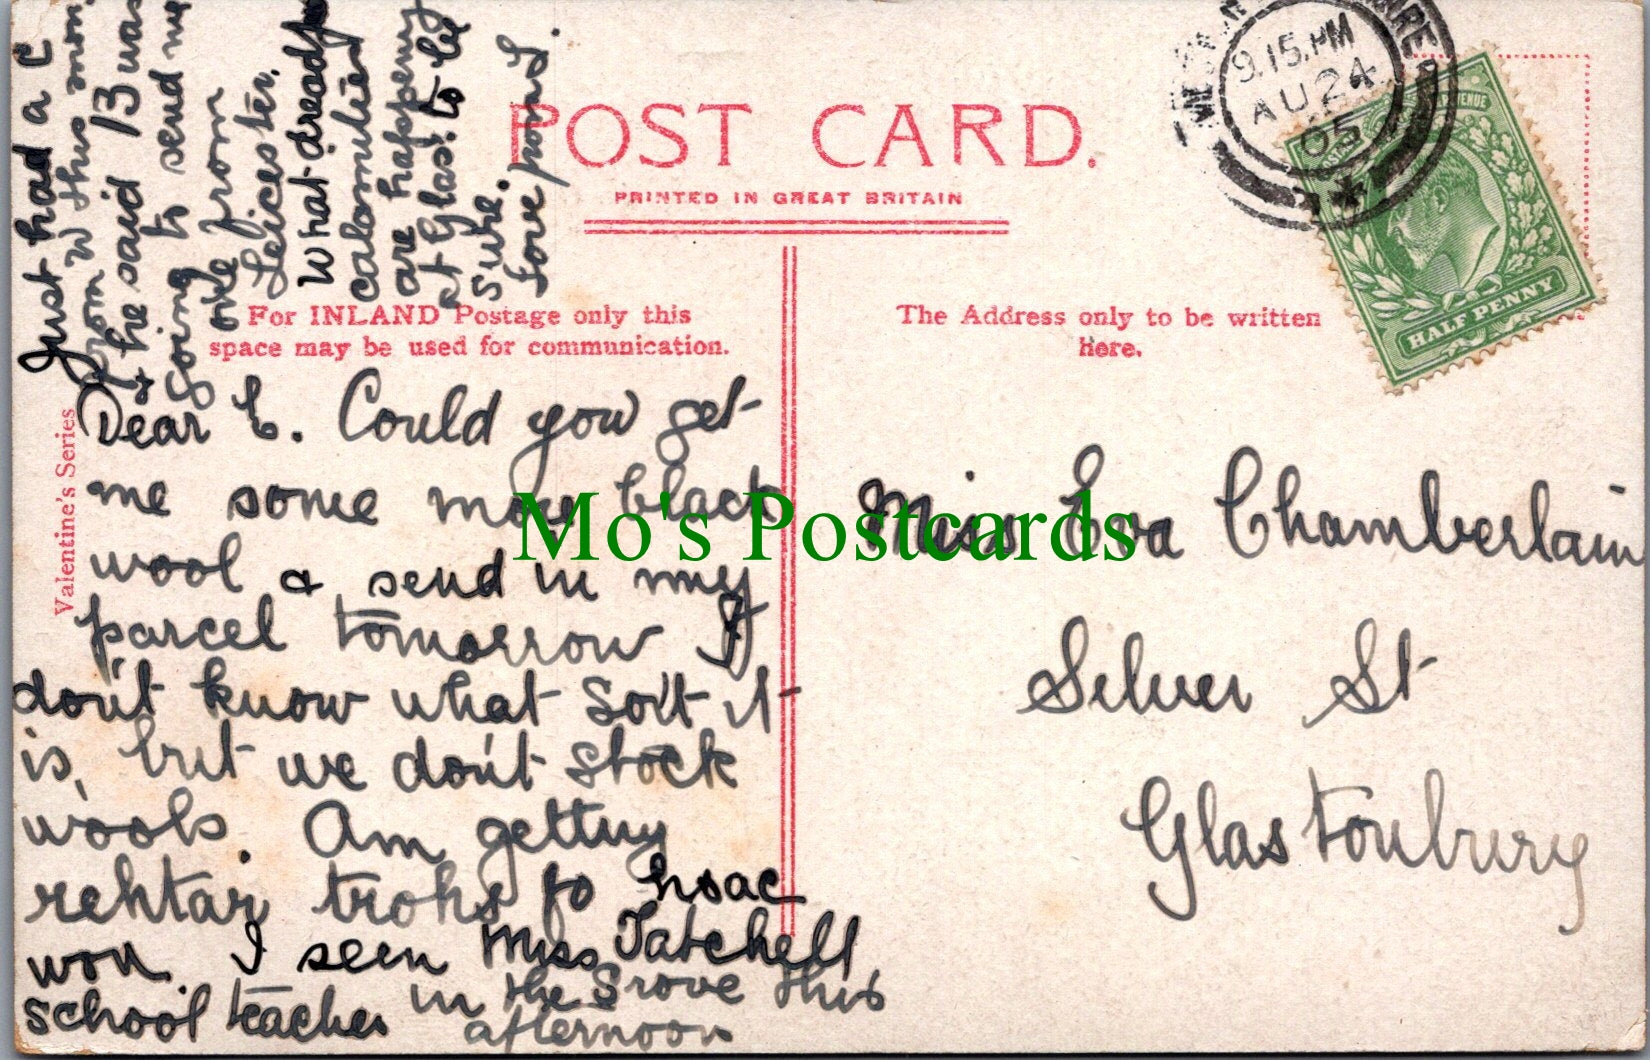 Just had a C
from W this morn
& he said 13 was
going to send me
one from
Leicester.
What dreadful
calamities
are happening
at Glas: to be
sure.
Love from J.
POST CARD.
PRINTED IN GREAT BRITAIN
9.15.PM
AU 24
05
HALF PENNY
For INLAND Postage only this
space may be used for communication.
The Address only to be written
Here.
Valentine's Series
Dear E. Could you get
me some more black
wool & send in my
parcel tomorrow I
don't know what sort it
is, but we don't stock
wools. Am getting
rehtar trohs fo hsac
won. I seen Miss Tatchell
school teacher in the Grove this
afternoon
Miss Eva Chamberlain
Silver St
Glastonbury
Mo's Postcards